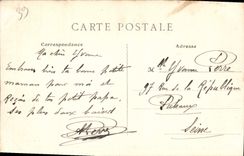 CARTE POSTALE
Correspondance
Adresse
Ma chère Yvonne
Embrasse bien ta bonne petite
maman pour moi et
Reçois de ton petit papa
ses plus doux baisers
Mlle Yvonne
97 Rue de la République
Puteaux
Seine